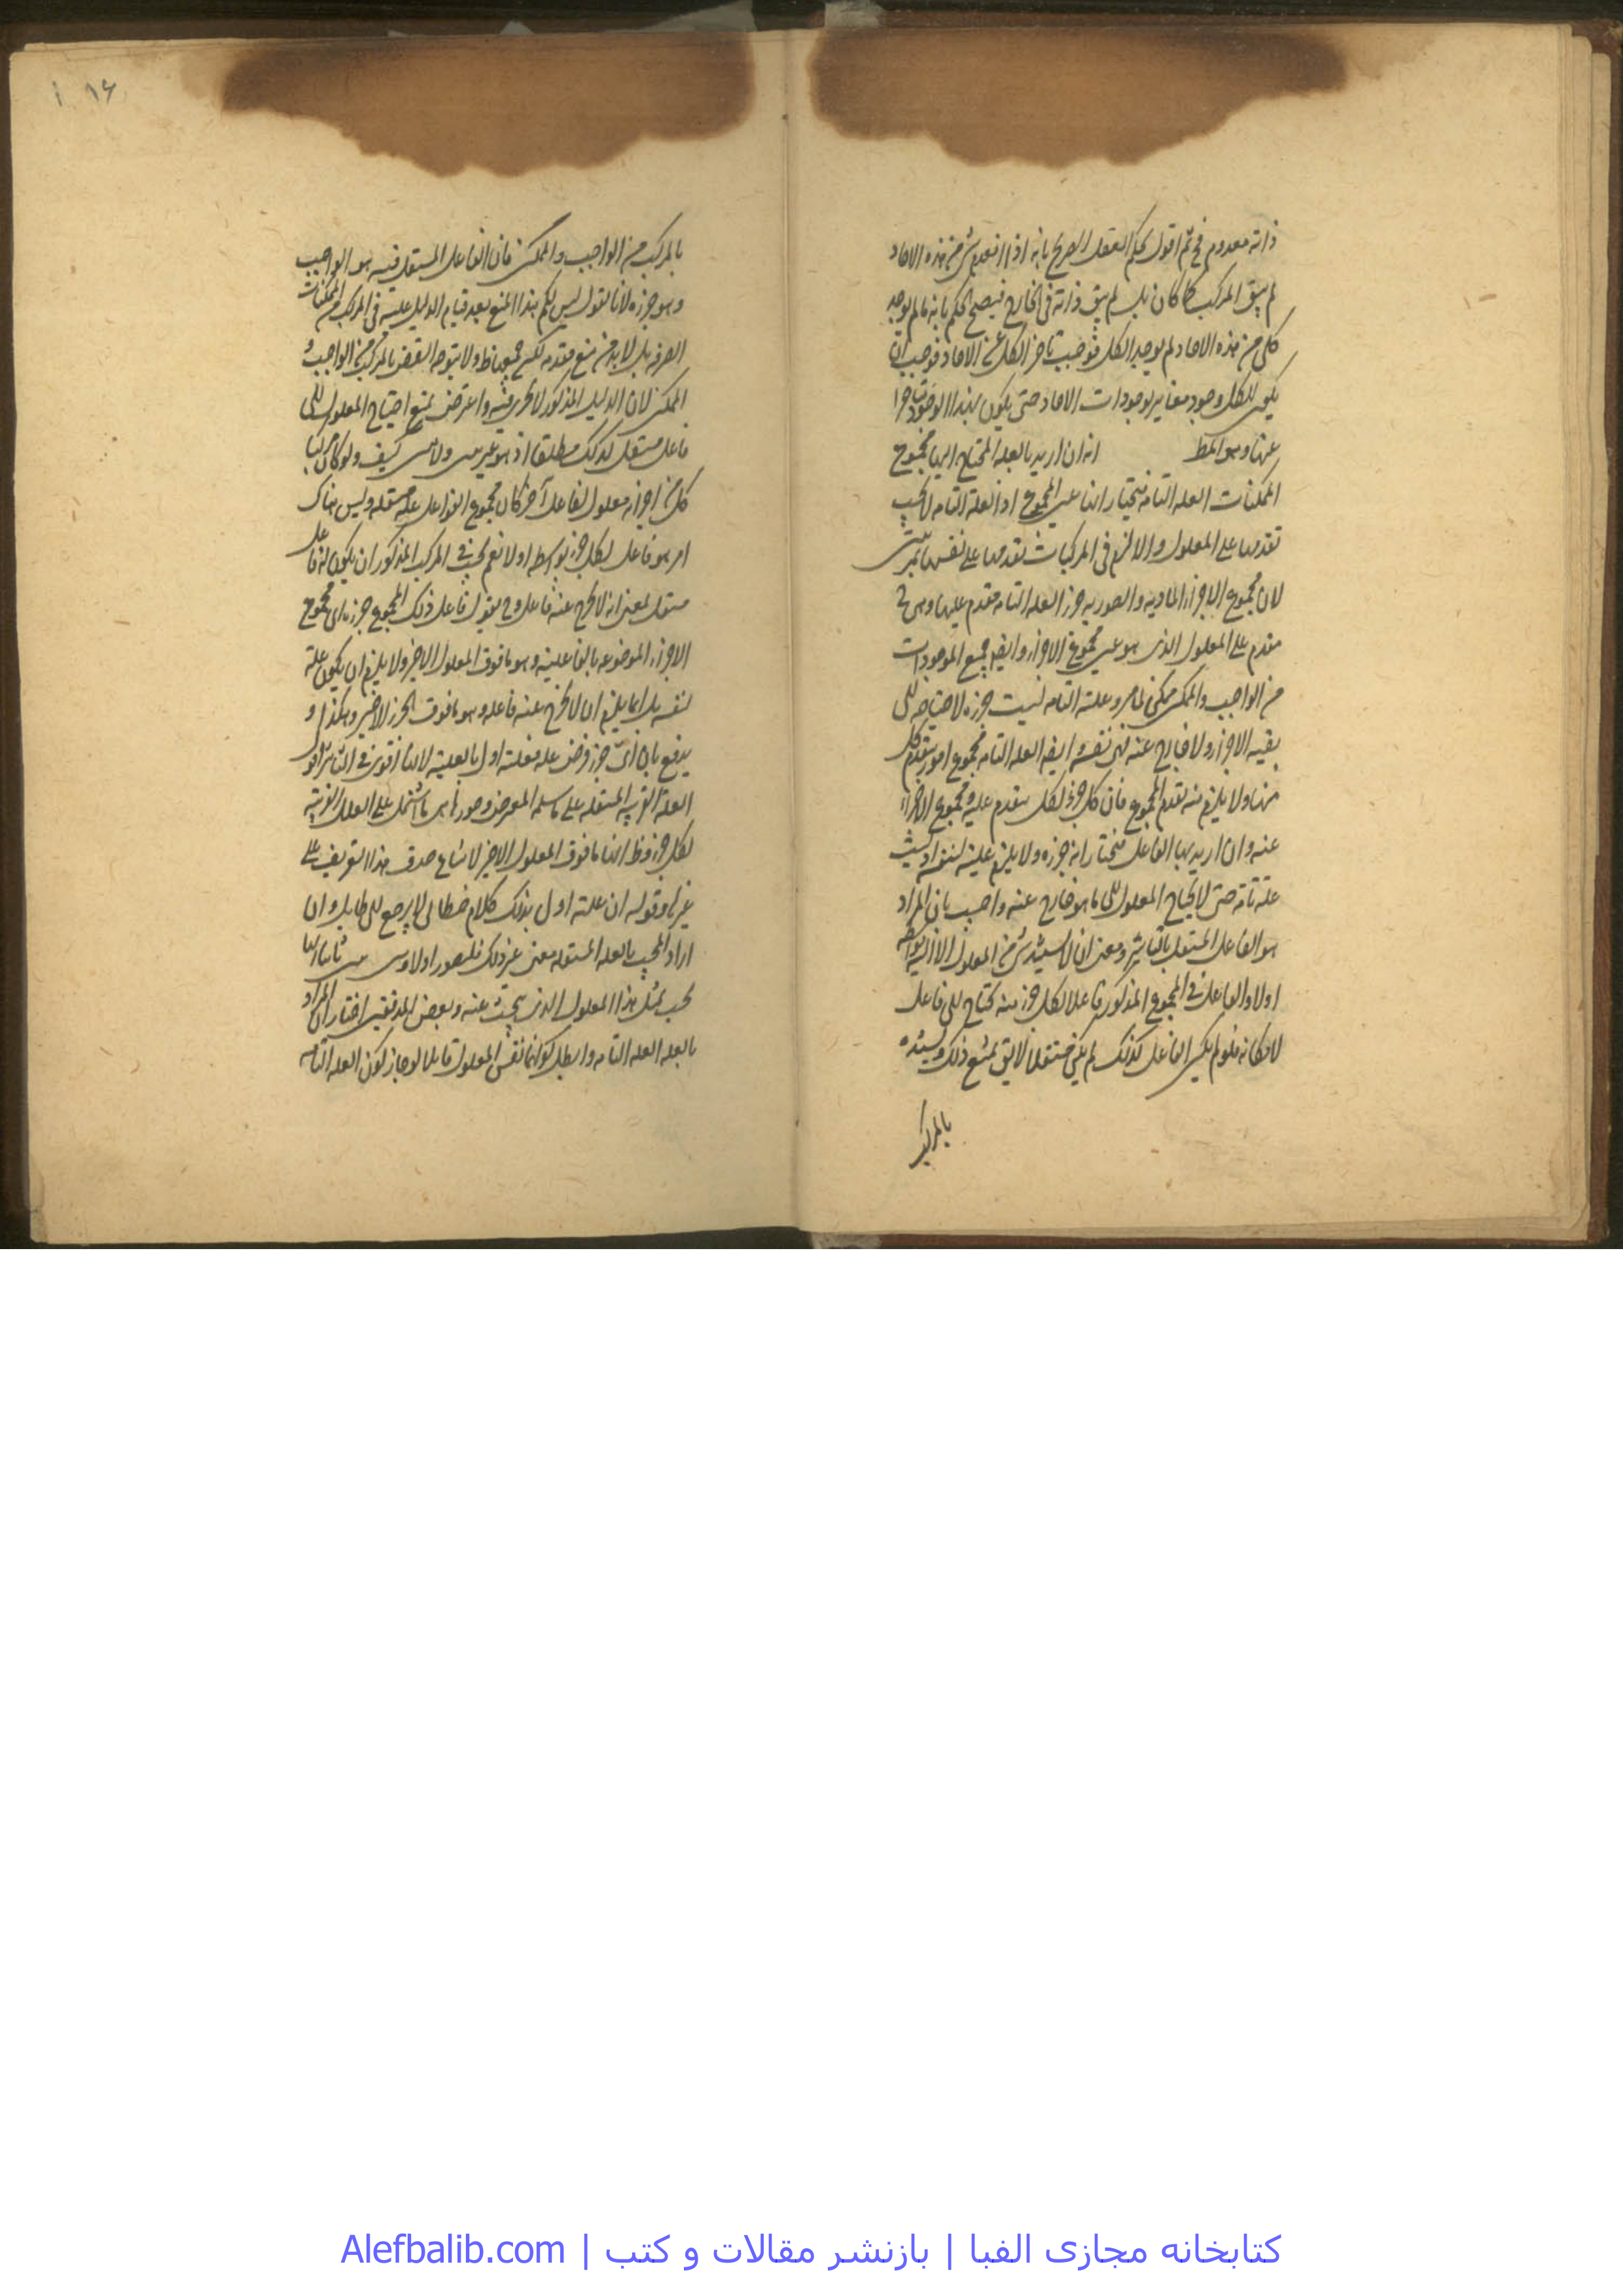 ذاته معدوم فح ثم اقول يحكم العقل الصريح بانه اذا انعدم شئ من هذه الاحاد
لم يبق المركب كما كان بل لم يبق ذاته فى الخارج فيصح الحكم بانه ما لم يوجد
كل من هذه الاحاد لم يوجد الكل فوجب تاخر الكل عن الاحاد فوجب ان
يكون للكل وجود مغاير لوجودات الاحاد حتى يكون بهذا الوجود متاخرا
عنها وهو المط انه ان اريد بالعله المحتاج اليها مجموع
الممكنات العله التامه فنختار انها عين المجموع اذ العله التامه لا يجب
تقدمها على المعلول والا لزم فى المركبات تقدمها على نفسها بمرتبتين
لان مجموع الاجزاء الماديه والصوريه جزء العله التامه مقدم عليها وهى ح
مقدم على المعلول الذى هو عين مجموع الاجزاء وايضا جميع الموجودات
من الواجب والممكن ممكن لما مر وعلته التامه ليست جزءه لاحتياجه الى
بقيه الاجزاء ولا خارج عنه فهى نفسه وايضا العله التامه مجموع امور يتقدم كل
منها ولا يلزم منه تقدم المجموع فان كل جزء لكل متقدم عليه ومجموع الاجزاء
عينه وان اريد بها الفاعل فنختار انه جزءه ولا يلزم عليته لنفسه اذ ليست
علة تامة حتى لا يحتاج المعلول الى ما هو خارج عنه واجيب بان المراد
هو الفاعل المستقل بالتاثير ومعنى ان لا يستند شئ من المعلول الا اليه بواسطه
اولا والفاعل فى المجموع المذكور فاعلا لكل جزء منه محتاج الى فاعل
لامكانه فلو لم يكن الفاعل كذلك لم يكن مستقلا لا يق نمنع ذلك وسنده
بالمركب
١٦
بالمركب من الواجب والممكن فان الفاعل المستقل فيه هو الواجب
وهو جزءه لانا نقول ليس لكم هذا المنع بعد قيام الدليل عليه فى المركب من الممكنات
الصرفه بل لا بد من منع مقدمه ولا يتوجه النقض بالمركب من الواجب و
الممكن لان الدليل المذكور لا يجرى فيه واعترض بمنع احتياج المعلول الى
فاعل مستقل كذلك مطلقا اذ هو غير كيف ولو كان مركبا
كل من اجزائه معلول لفاعل آخر كان مجموع الفواعل علة مستقله وليس هناك
امر هو فاعل لكل جزء بواسطه اولا نعم يجب فى المركب المذكور ان يكون له فاعل
مستقل بمعنى انه لا يخرج عنه فاعل وح نقول فاعل ذلك المجموع جزءه اى مجموع
الاجزاء الموضوعه بالفاعليه وهو ما فوق المعلول الاخير ولا يلزم ان يكون علة
لنفسه بل انما يلزم ان لا يخرج عنه فاعله وهو ما فوق الجزء الاخير وهكذا و
يدفع بان اى جزء فرض علة فعلته اولى بالعليه لانها اقوى فى التاثير او
العلة القريبه المشتمله على العلل القريبه
لكل جزء وظ انها ما فوق المعلول الاخير لامتناع صدق هذا التعريف على
غيرها وقوله ان علته اولى بذلك كلام خطابى لا يرجع الى طايل وان
اراد المجيب بالعله المستقله معنى غير ذلك فليصور اولا ثانيا انها
يجب بمثل هذا المعلول الذى يبحث عنه وبعض المدققين اختار ان المراد
بالعله العله التامه وابطل كونها نفس المعلول قايلا لو جاز كون العله التامه
کتابخانه مجازی الفبا | بازنشر مقالات و کتب | Alefbalib.com